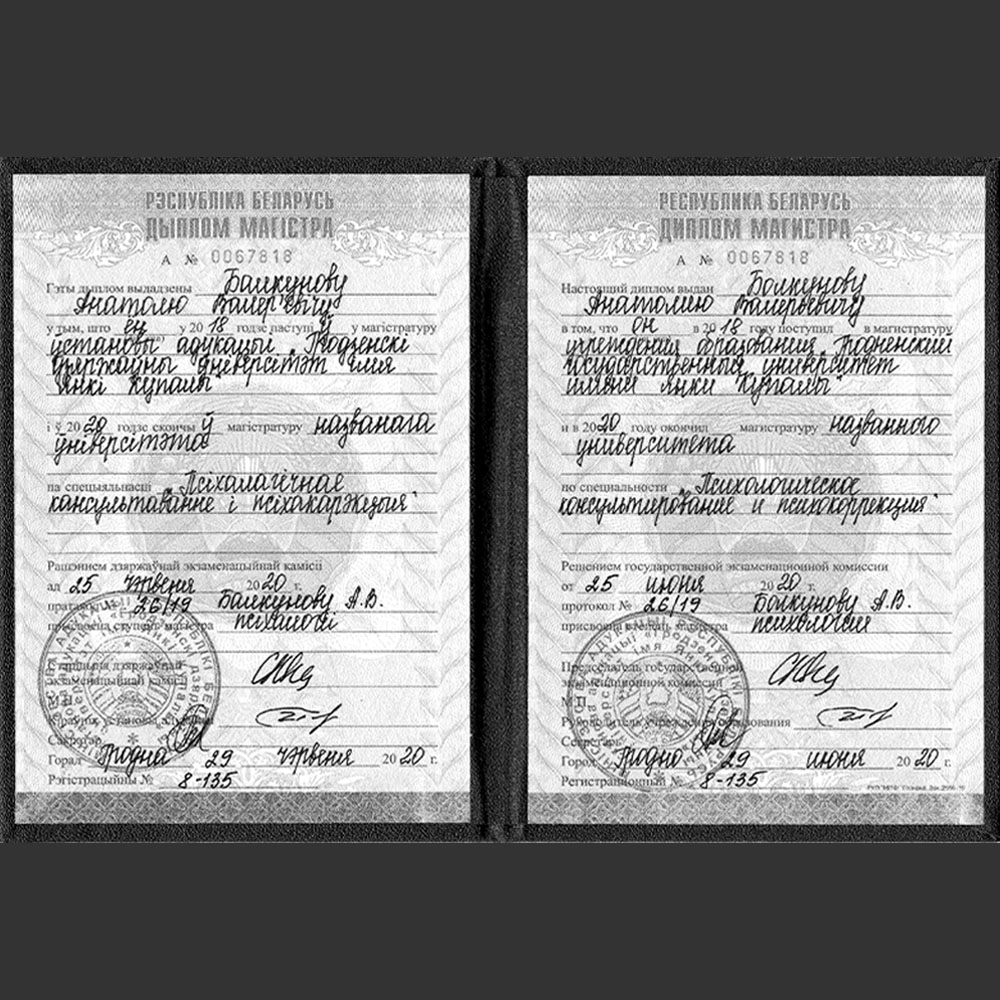 РЭСПУБЛІКА БЕЛАРУСЬ
ДЫПЛОМ МАГІСТРА
А № 0067818
Гэты дыплом выдадзены Балкунову
Анатолю Валер'евічу
у тым, што ён у 2018 годзе паступіў у магістратуру
ўстановы адукацыі "Гродзенскі
дзяржаўны ўніверсітэт імя
Янкі Купалы"
і ў 2020 годзе скончыў магістратуру названага
ўніверсітэта
па спецыяльнасці "Псіхалагічнае
кансультаванне і псіхакарэкцыя"
Рашэннем дзяржаўнай экзаменацыйнай камісіі
ад 25 чэрвеня 2020 г.
пратакол № 26/19 Балкунову А.В.
прысвоена ступень магістра псіхалогіі
Старшыня дзяржаўнай
экзаменацыйнай камісіі
М.П.
Кіраўнік установы адукацыі
Сакратар
Горад Гродна 29 чэрвеня 2020 г.
Рэгістрацыйны № 8-135
РЕСПУБЛИКА БЕЛАРУСЬ
ДИПЛОМ МАГИСТРА
А № 0067818
Настоящий диплом выдан Болкунову
Анатолию Валерьевичу
в том, что он в 2018 году поступил в магистратуру
учреждения образования "Гродненский
государственный университет
имени Янки Купалы"
и в 2020 году окончил магистратуру названного
университета
по специальности "Психологическое
консультирование и психокоррекция"
Решением государственной экзаменационной комиссии
от 25 июня 2020 г.
протокол № 26/19 Болкунову А.В.
присвоена степень магистра психологии
Председатель государственной
экзаменационной комиссии
М.П.
Руководитель учреждения образования
Секретарь
Город Гродно 29 июня 2020 г.
Регистрационный № 8-135